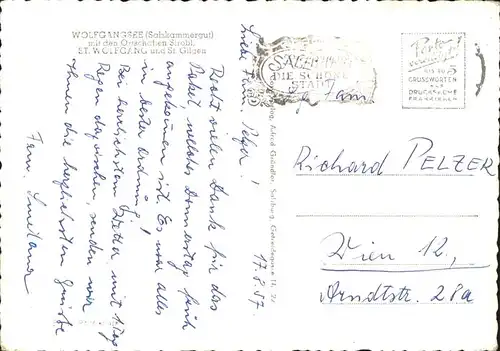 WOLFGANGSEE (Salzkammergut)
mit den Ortschaften Strobl,
ST. WOLFGANG und St. Gilgen
17. 8. 57.
Liebe Fam. Pelzer!
Recht vielen Dank für das
Paket welches Donnerstag früh
angekommen ist. Es war alles
in bester Ordnung!
Bei herrlichstem Wetter, mit 1 Tag
Regen dazwischen, senden wir
Ihnen die herzlichsten Grüße
Fam.
SALZBURG
DIE SCHÖNE
STADT
Porto
BIS ZU 5
GRUSSWORTEN
ALS
DRUCKSACHE
FRANKIEREN
Fam.
Richard PELZER
Wien 12,
Arndtstr. 28a